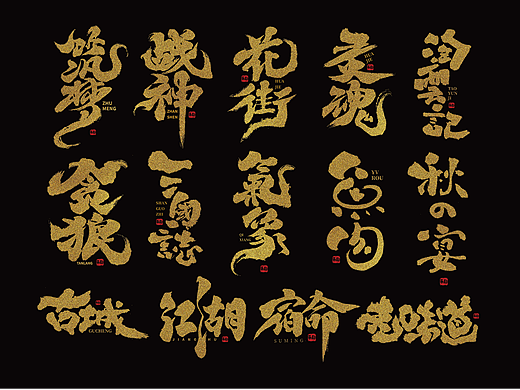 筑梦
ZHU
MENG
战神
ZHAN
SHEN
花街
HUA
JIE
魂
HUA
JIE
淘
記
TAO
YUN
JI
贪狼
TANLANG
三國誌
SHAN
GUO
ZHI
氣象
QI
XIANG
魚肉
YU
ROU
秋の宴
古城
GUCHENG
江湖
JIANG HU
宿命
SUMING
味道